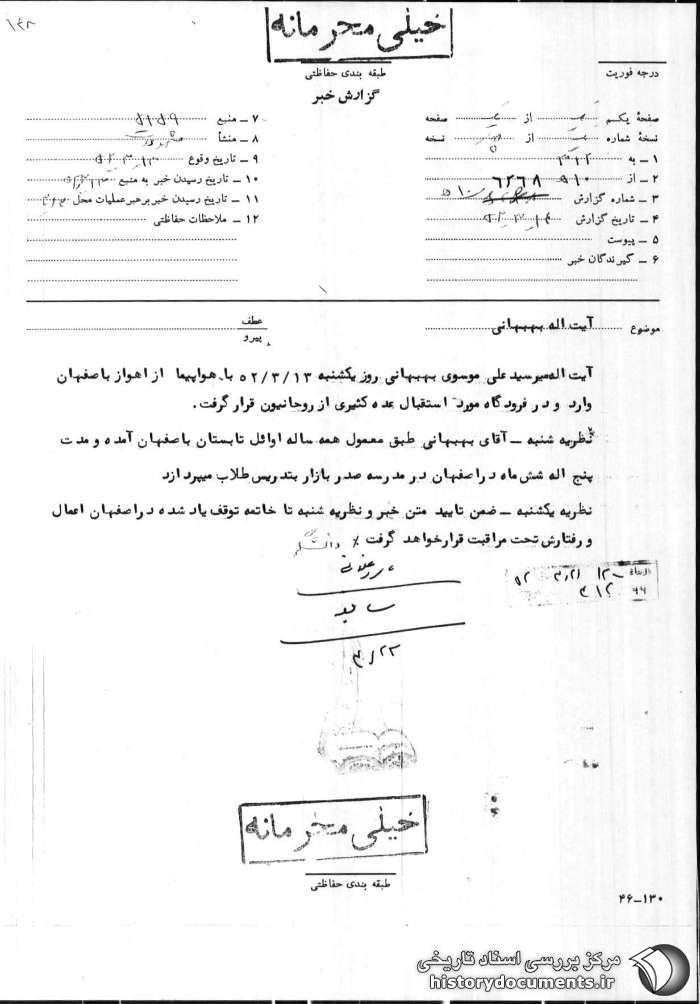 ۱۴۸
خیلی محرمانه
طبقه بندی حفاظتی
درجه فوریت
گزارش خبر
صفحهٔ یکم از صفحه
نسخهٔ شماره از نسخه
۱ ـ به ۳۱۲
۲ ـ از ۹۱۰
۳ ـ شماره گزارش ۶۲۶۸
۴ ـ تاریخ گزارش
۵ ـ پیوست
۶ ـ گیرندگان خبر
۷ ـ منبع
۸ ـ منشأ
۹ ـ تاریخ وقوع
۱۰ ـ تاریخ رسیدن خبر به منبع
۱۱ ـ تاریخ رسیدن خبر برهبر عملیات محل
۱۲ ـ ملاحظات حفاظتی
موضوع آیت اله بهبهانی
عطف
پیرو
آیت اله میرسید علی موسوی بهبهانی روز یکشنبه ۵۲/۳/۱۳ با هواپیما از اهواز باصفهان
وارد و در فرودگاه مورد استقبال عده کثیری از روحانیون قرار گرفت.
نظریه شنبه ـ آقای بهبهانی طبق معمول همه ساله اوائل تابستان باصفهان آمده و مدت
پنج اله شش ماه در اصفهان در مدرسه صدر بازار بتدریس طلاب میپردازد
نظریه یکشنبه ـ ضمن تایید متن خبر و نظریه شنبه تا خاتمه توقف یاد شده در اصفهان اعمال
و رفتارش تحت مراقبت قرار خواهد گرفت
۳۱۲
۴/۲۳
خیلی محرمانه
طبقه بندی حفاظتی
۴۶-۱۳۰
مرکز بررسی اسناد تاریخی
historydocuments.ir